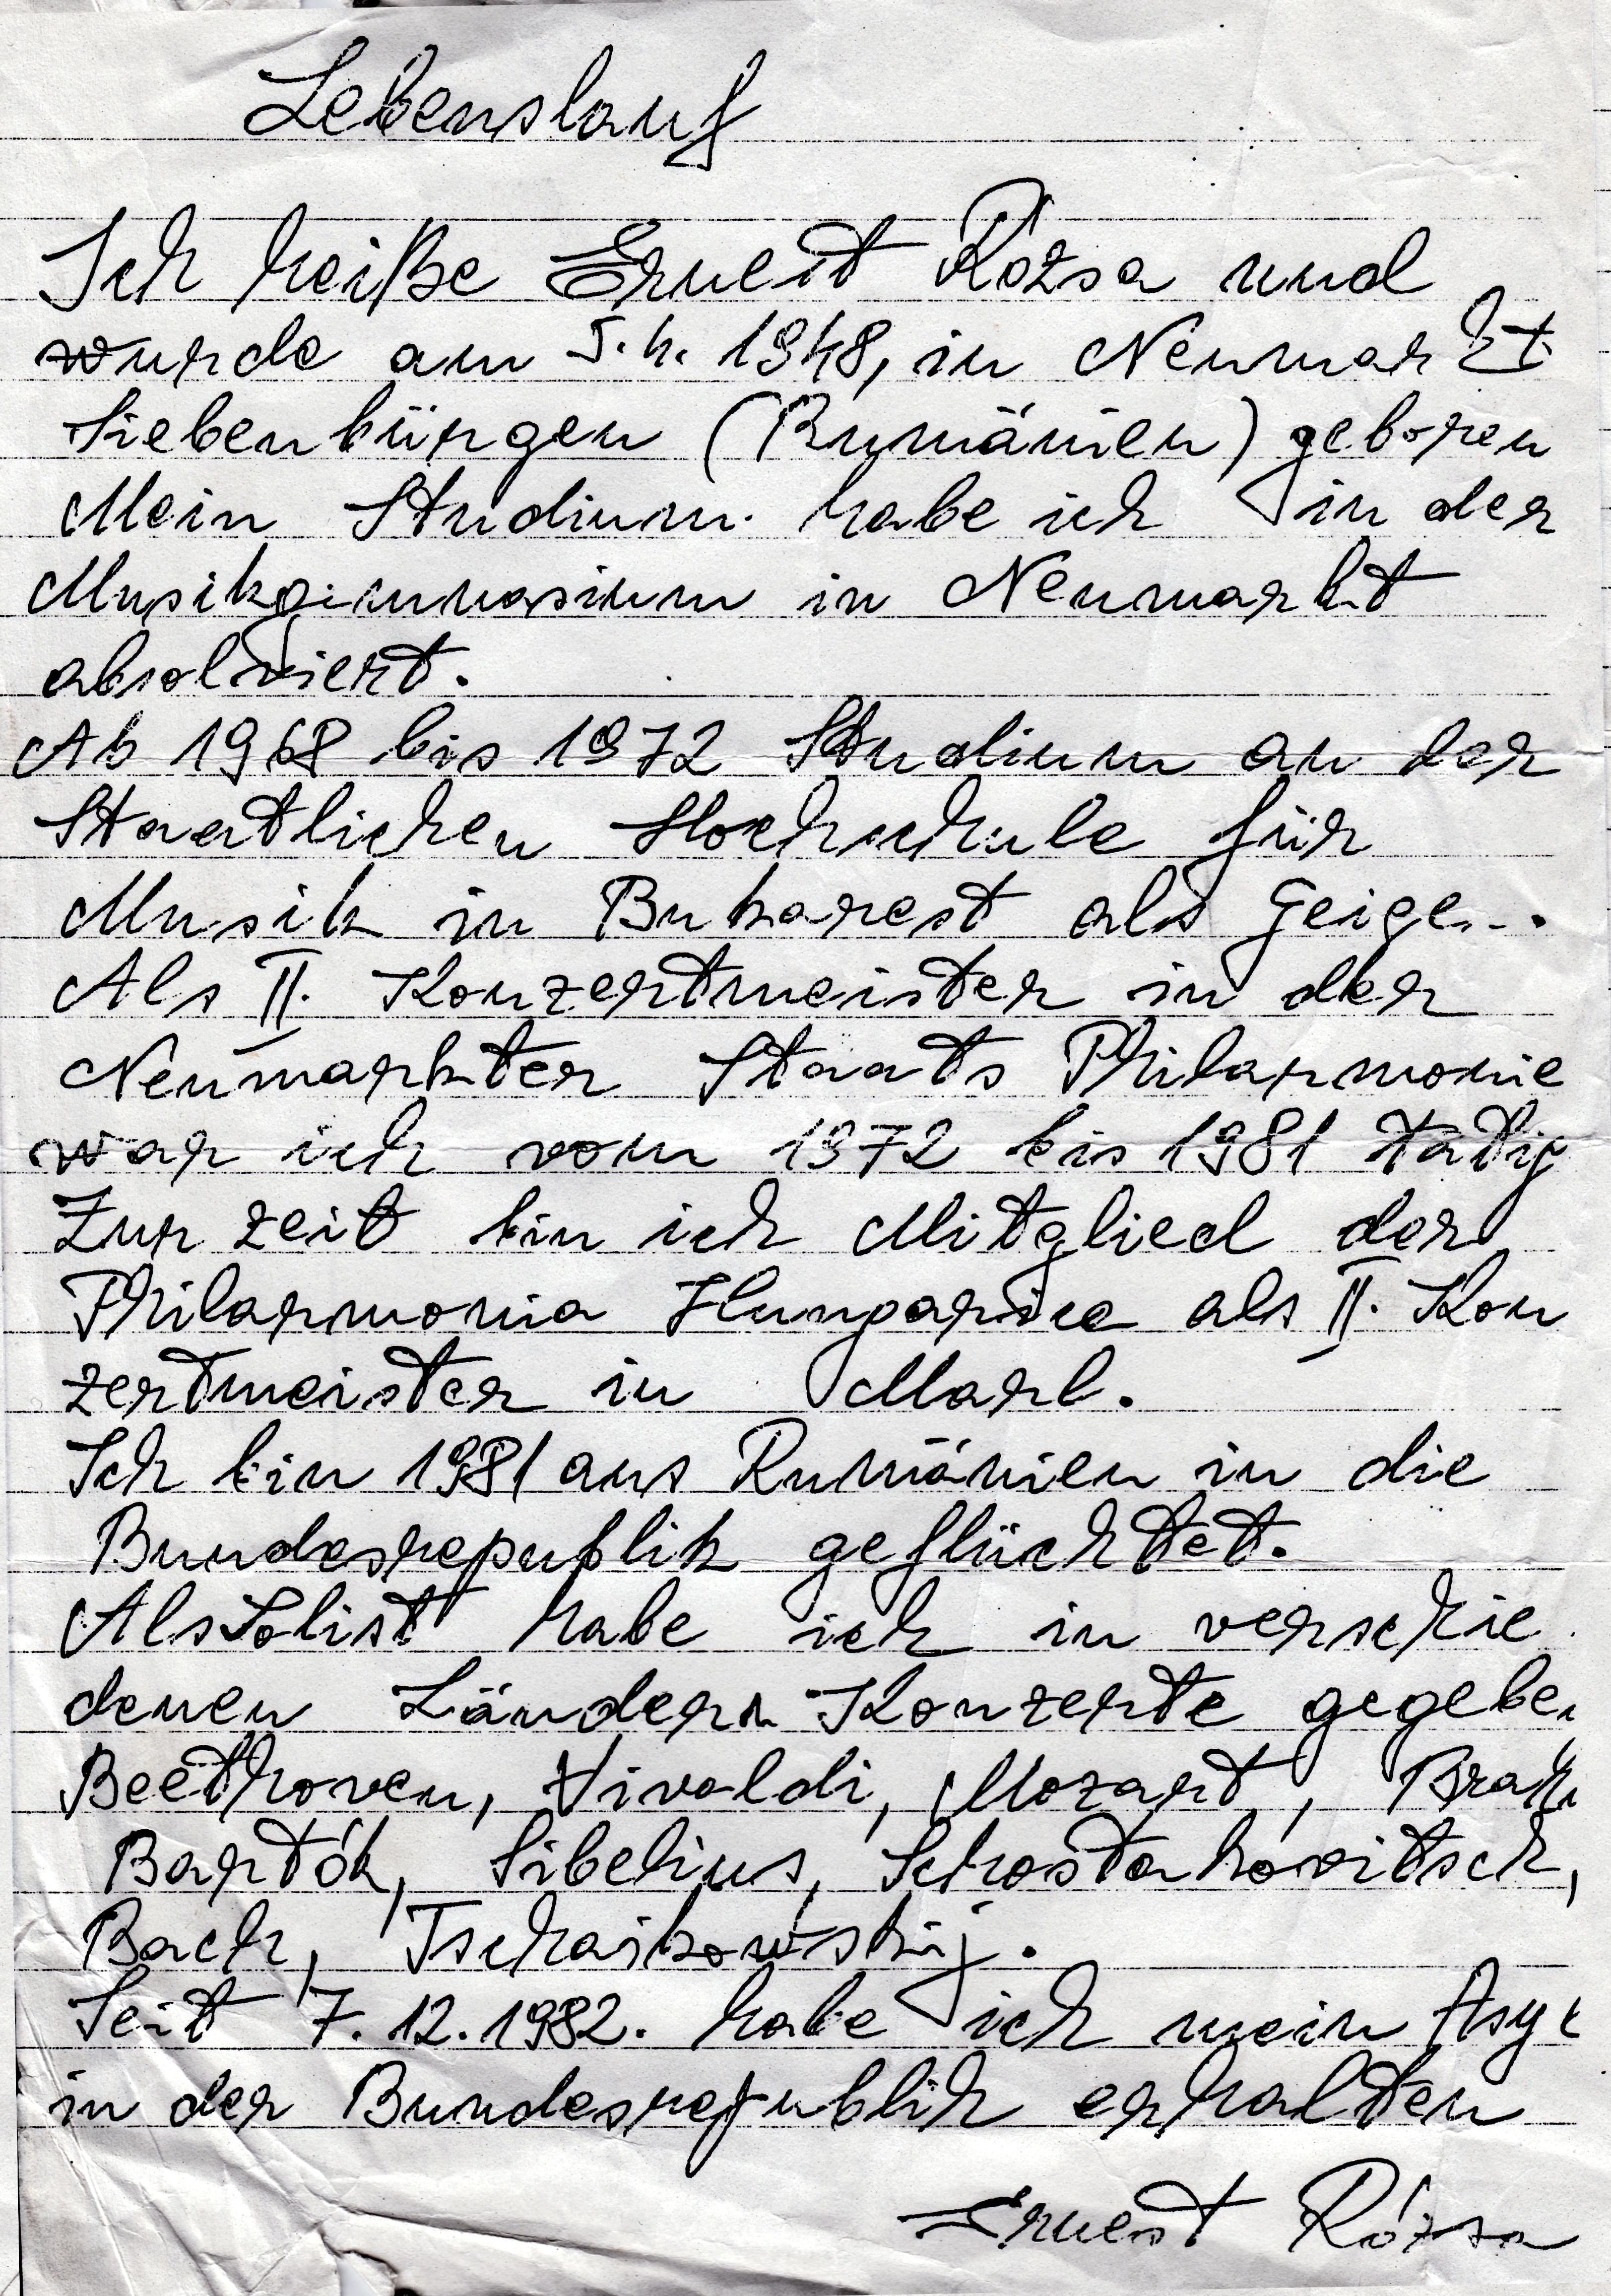 Lebenslauf
Ich heiße Ernest Rózsa und
wurde am 5.4. 1948, in Neumarkt
Siebenbürgen (Rumänien) geboren
Mein Studium habe ich in der
Musikgimnasium in Neumarkt
absolviert.
Ab 1968 bis 1972 Studium an der
Staatlichen Hochschule für
Musik in Bukarest als Geige...
Als II. Konzertmeister in der
Neumarkter Staats Philarmonie
war ich vom 1972 bis 1981 tätig
Zur zeit bin ich Mitglied der
Philarmonia Hungarica als II. Kon
zertmeister in Marl.
Ich bin 1981 aus Rumänien in die
Bundesrepublik geflüchtet.
Als Solist habe ich in verschie
denen Ländern Konzerte gegeben
Beethoven, Vivaldi, Mozart, Brah
Bartók, Sibelius, Schostakovitsch,
Bach, Tschaikowskij.
Seit 7.12.1982. habe ich mein Asyl
in der Bundesrepublik erhalten
Ernest Rózsa